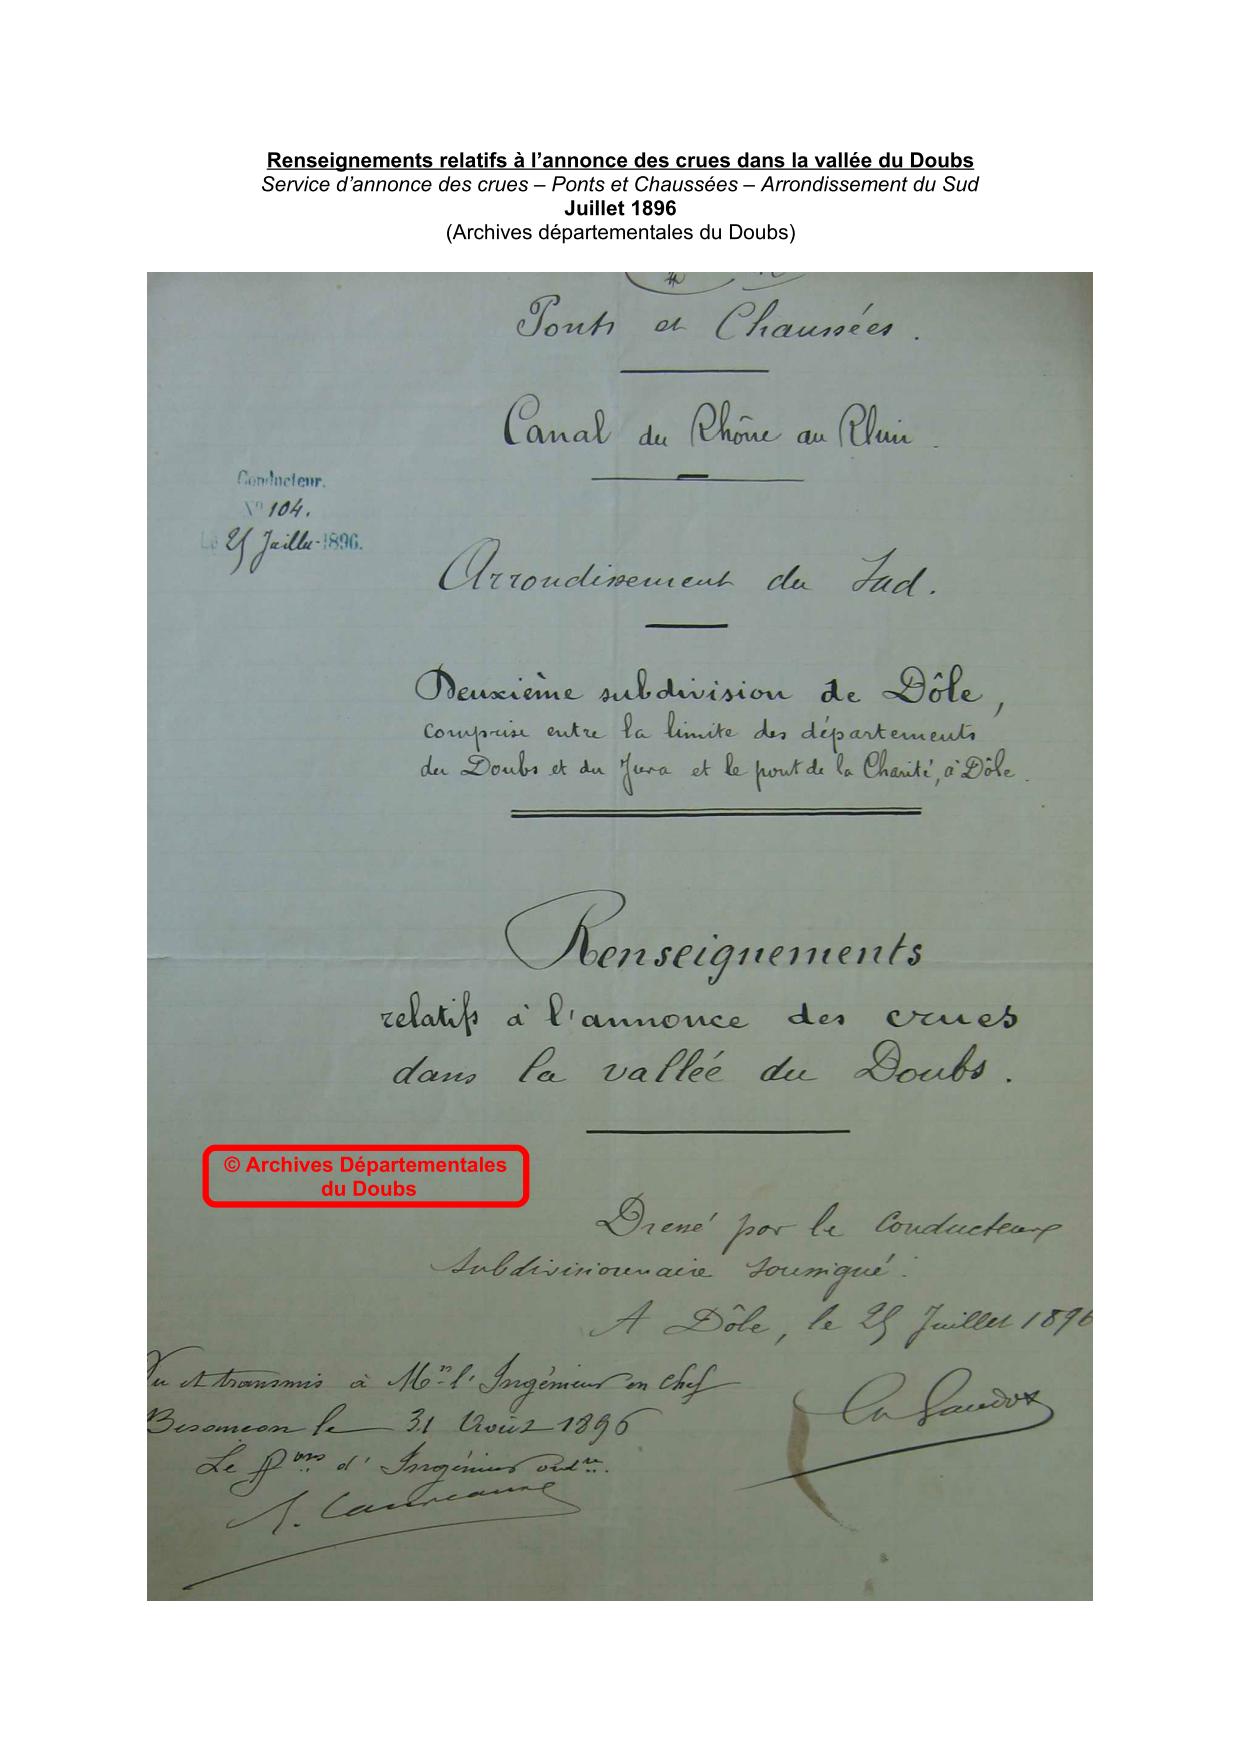 Renseignements relatifs à l’annonce des crues dans la vallée du Doubs
Service d’annonce des crues – Ponts et Chaussées – Arrondissement du Sud
Juillet 1896
(Archives départementales du Doubs)
Ponts et Chaussées.
Canal du Rhône au Rhin.
Conducteur.
N° 104.
Le 25 Juillet 1896.
Arrondissement du Sud.
Deuxième subdivision de Dôle,
comprise entre la limite des départements
du Doubs et du Jura et le pont de la Charité, à Dôle.
Renseignements
relatifs à l'annonce des crues
dans la vallée du Doubs.
© Archives Départementales
du Doubs
Dressé par le Conducteur
subdivisionnaire soussigné.
A Dôle, le 25 Juillet 1896
Vu et transmis à Mr l'Ingénieur en chef
Besançon le 31 Août 1896
Le d'Ingénieur ordre.